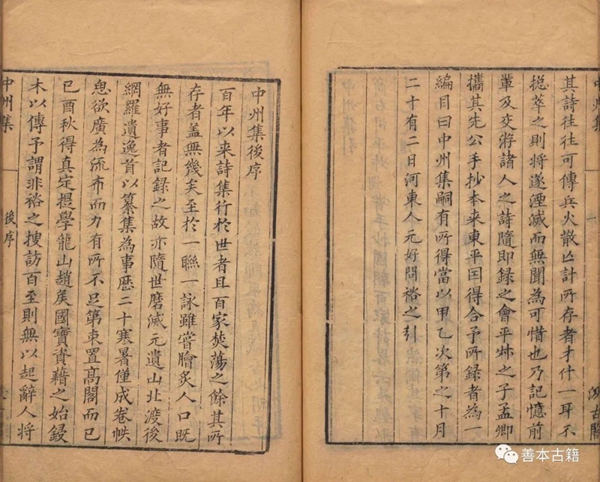 中州集
一
汲古閣
其詩往往可傳兵火散亾計所存者才什一耳不
揔萃之則將遂湮滅而無聞為可惜也乃記憶前
輩及交游諸人之詩隨即録之會平叔之子孟卿
攜其先公手抄本来東平因得合予所録者為一
編目曰中州集嗣有所得當以甲乙次第之十月
二十有二日河東人元好問裕之引
中州集後序
百年以来詩集行於世者且百家焚蕩之餘其所
存者蓋無幾矣至於一聯一詠雖嘗膾炙人口既
無好事者記録之故亦隨世磨滅元遺山北渡後
網羅遺逸首以纂集為事歷二十寒暑僅成卷帙
思欲廣為流布而力有所不足第束置高閣而已
己酉秋得真定提學龍山趙矦國寶資藉之始鋟
木以傳予謂非裕之搜訪百至則無以起辭人將
中州集
後序
善本古籍